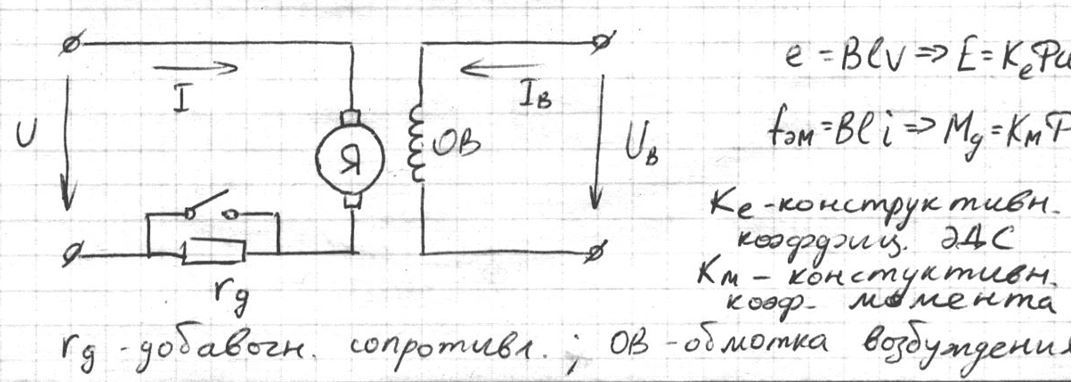 I
U
Я
ОВ
Iв
Uв
rд
e = Blv ⇒ E = KeФω
fэм = Bli ⇒ Mд = KмФ
Ke - конструктивн.
коэффиц. ЭДС
Kм - констуктивн.
коэф. момента
rд - добавочн. сопротивл. ; ОВ - обмотка возбуждения